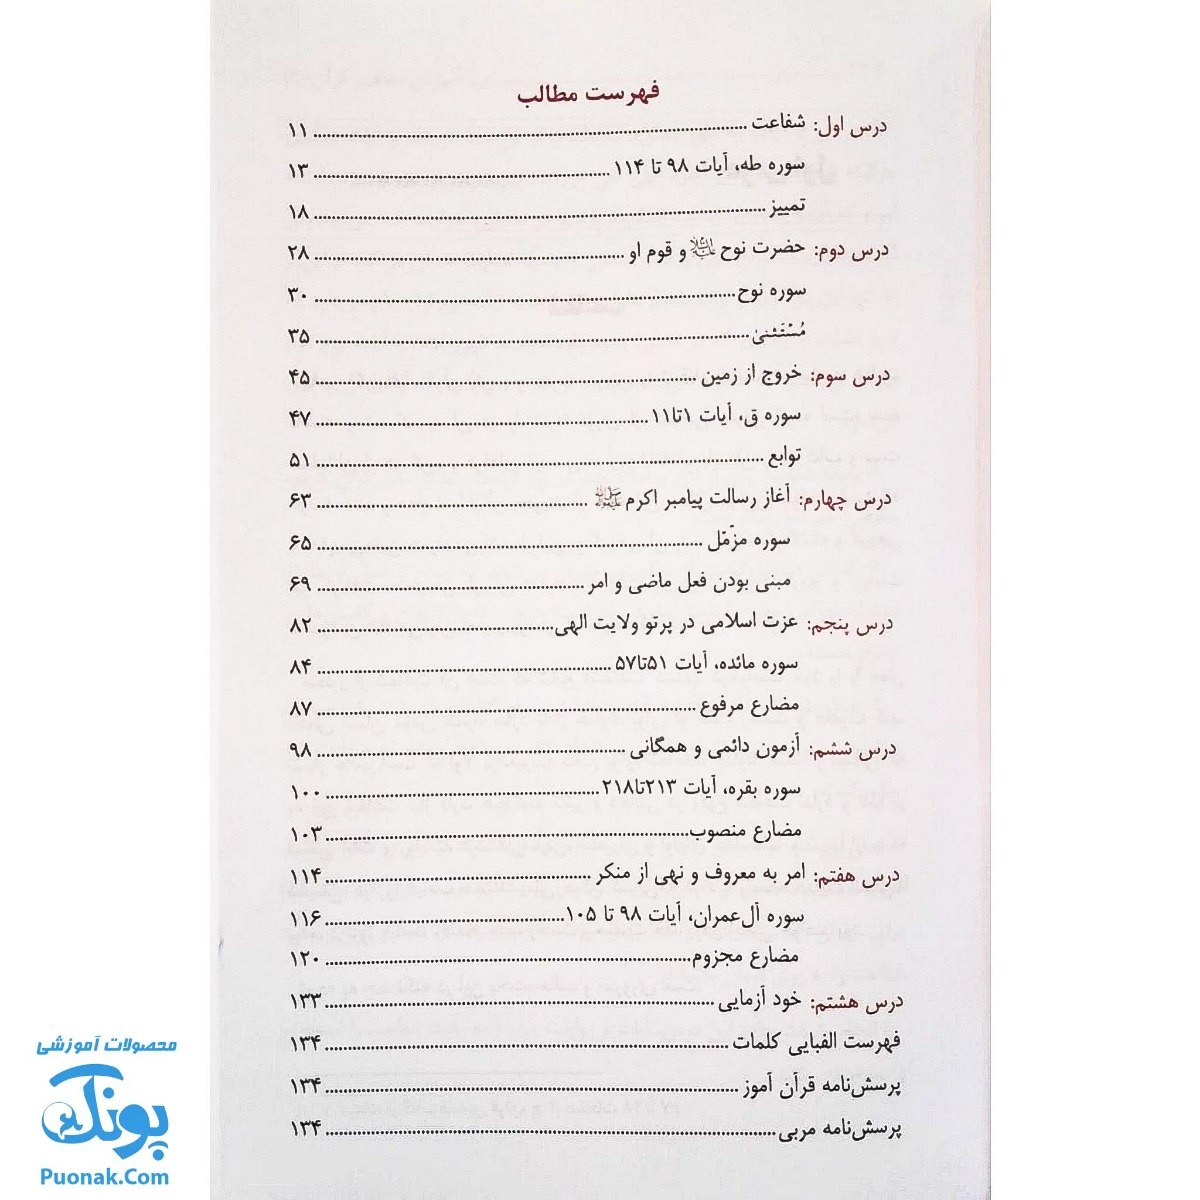 فهرست مطالب
درس اول: شفاعت ........ ۱۱
سوره طه، آیات ۹۸ تا ۱۱۴ ........ ۱۳
تمییز ........ ۱۸
درس دوم: حضرت نوح علیه‌السلام و قوم او ........ ۲۸
سوره نوح ........ ۳۰
مُسْتَثنیٰ ........ ۳۵
درس سوم: خروج از زمین ........ ۴۵
سوره ق، آیات ۱تا۱۱ ........ ۴۷
توابع ........ ۵۱
درس چهارم: آغاز رسالت پیامبر اکرم ﷺ ........ ۶۳
سوره مزّمّل ........ ۶۵
مبنی بودن فعل ماضی و امر ........ ۶۹
درس پنجم: عزت اسلامی در پرتو ولایت الهی ........ ۸۲
سوره مائده، آیات ۵۱تا۵۷ ........ ۸۴
مضارع مرفوع ........ ۸۷
درس ششم: آزمون دائمی و همگانی ........ ۹۸
سوره بقره، آیات ۲۱۳تا۲۱۸ ........ ۱۰۰
مضارع منصوب ........ ۱۰۳
درس هفتم: امر به معروف و نهی از منکر ........ ۱۱۴
سوره آل‌عمران، آیات ۹۸ تا ۱۰۵ ........ ۱۱۶
مضارع مجزوم ........ ۱۲۰
درس هشتم: خود آزمایی ........ ۱۳۳
فهرست الفبایی کلمات ........ ۱۳۴
پرسش‌نامه قرآن آموز ........ ۱۳۴
پرسش‌نامه مربی ........ ۱۳۴
محصولات آموزشی
پونک
Puonak.Com